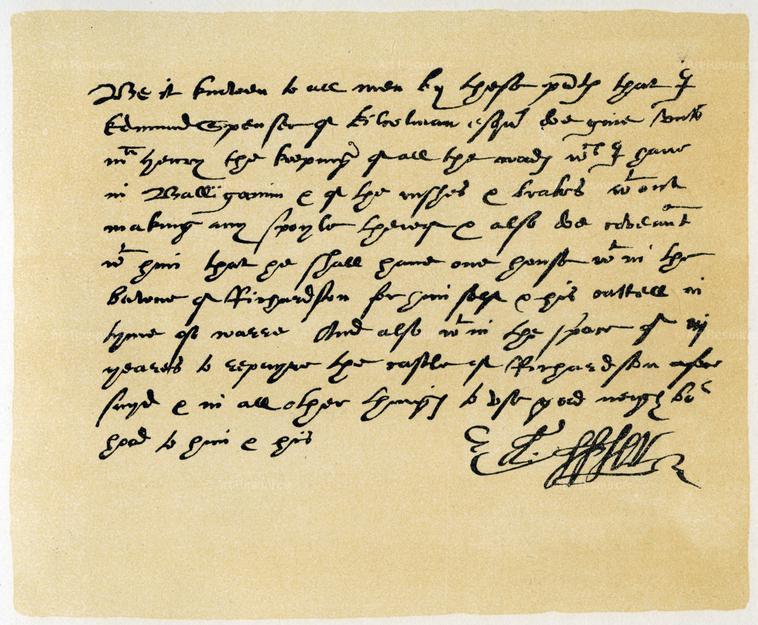 Be it knowen to all men by these pnts that I
Edmund Spenser of Kilcolman esqr doe give unto
mr Henry the keeping of all the woods wch I have
in Balliganim & of the rushes & brakes wthout
making any spoyle therof & also doe covenāt
wth him that he shall have one house wthin the
bawne of Richardston for him self & his cattell in
tyme of warre And also wthin the space of vij
yeares to repayre the castle of Richardston afore
sayd & in all other things to use good neighbor
hood to him & his
Ed: Spser